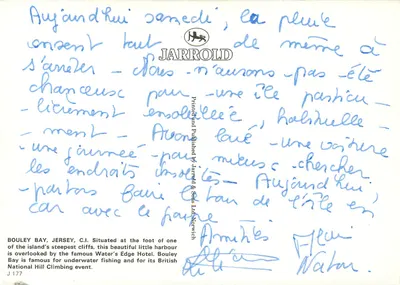 Aujourd'hui samedi, la pluie
consent tout de même à
s'arrêter - Nous n'aurons pas été
chanceux pour une île particu-
-lièrement ensoleillée, habituelle-
-ment - Avons loué une voiture
une journée pour mieux chercher
les endroits insolites - Aujourd'hui
partons faire le tour de l'île en
car avec le
Amitiés
JARROLD
Printed and Published by Jarrold & Sons Ltd, Norwich
BOULEY BAY, JERSEY, C.I. Situated at the foot of one
of the island's steepest cliffs, this beautiful little harbour
is overlooked by the famous Water's Edge Hotel. Bouley
Bay is famous for underwater fishing and for its British
National Hill Climbing event.
J 177